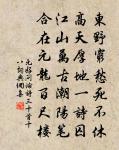 東野窮愁死不休
高天厚地一詩囚
江山萬古潮陽筆
合在元龍百尺樓
元好問論詩三十首十
八詞典網書